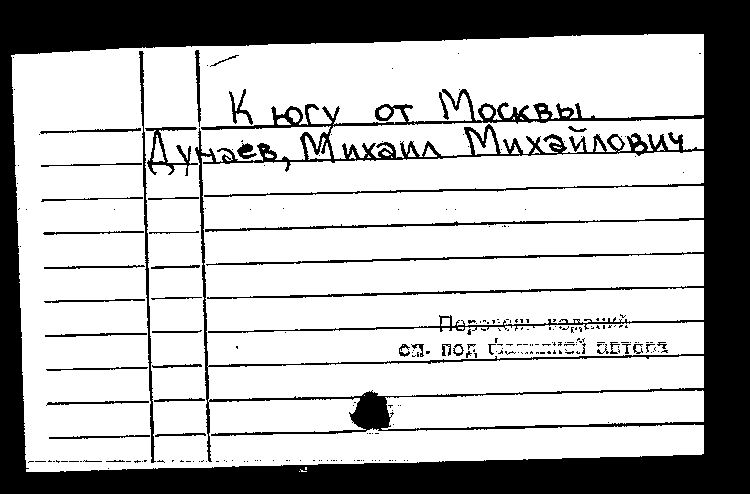 К югу от Москвы.
Дунаев, Михаил Михайлович.
Перечень изданий
см. под фамилией автора